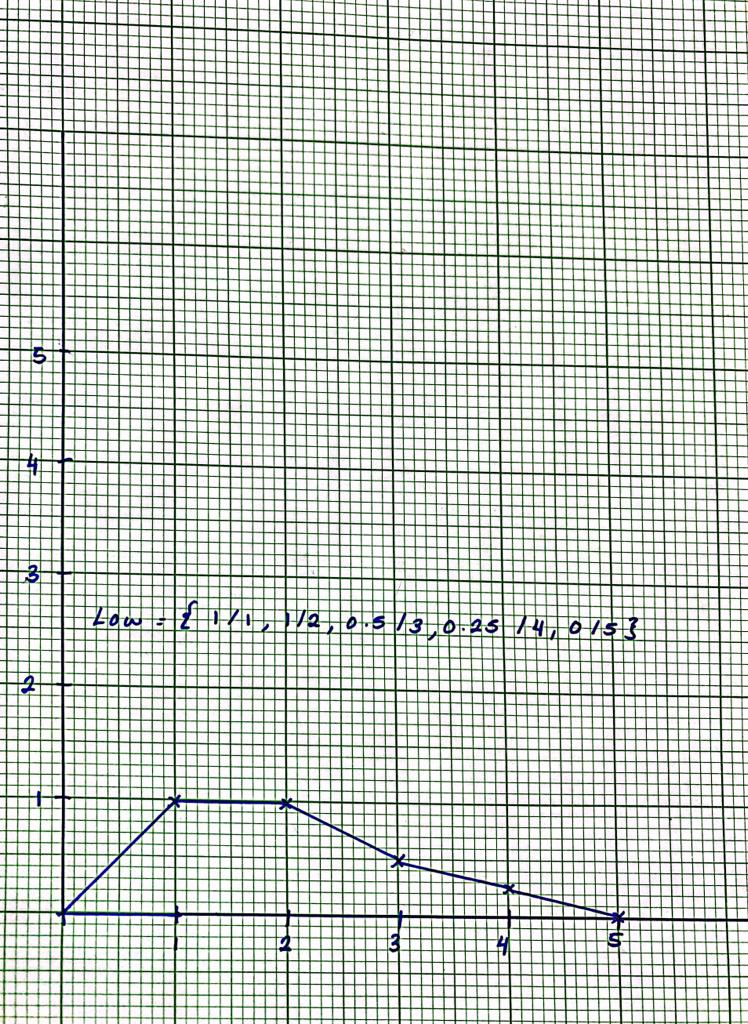 5
4
3
Low = { 1/1, 1/2, 0.5/3, 0.25/4, 0/5}
2
1
1 2 3 4 5